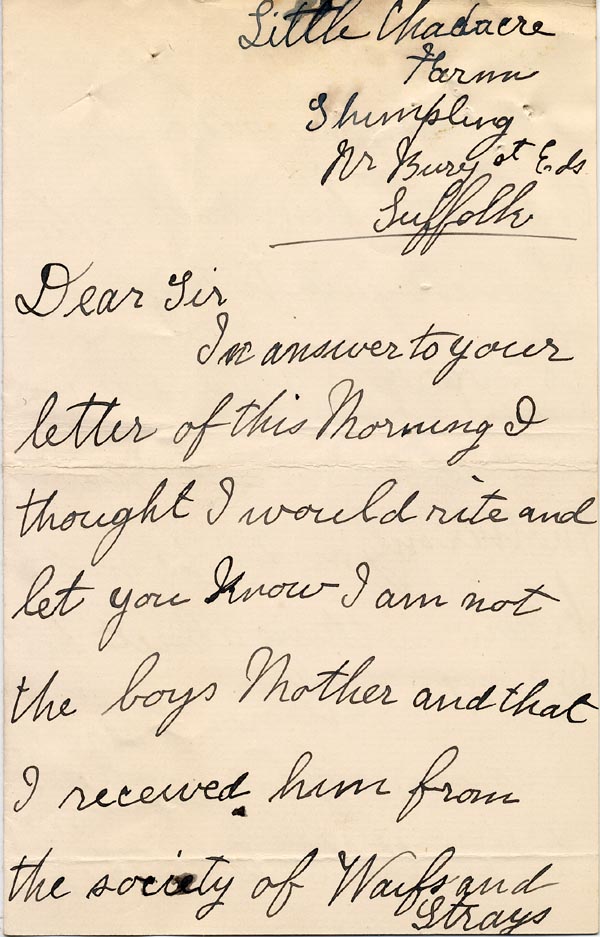 Little Chadacre
Farm
Shimpling
Nr Bury st Eds
Suffolk
Dear Sir
In answer to your
letter of this Morning I
thought I would rite and
let you Know I am not
the boys Mother and that
I received him from
the society of Waifs and
Strays